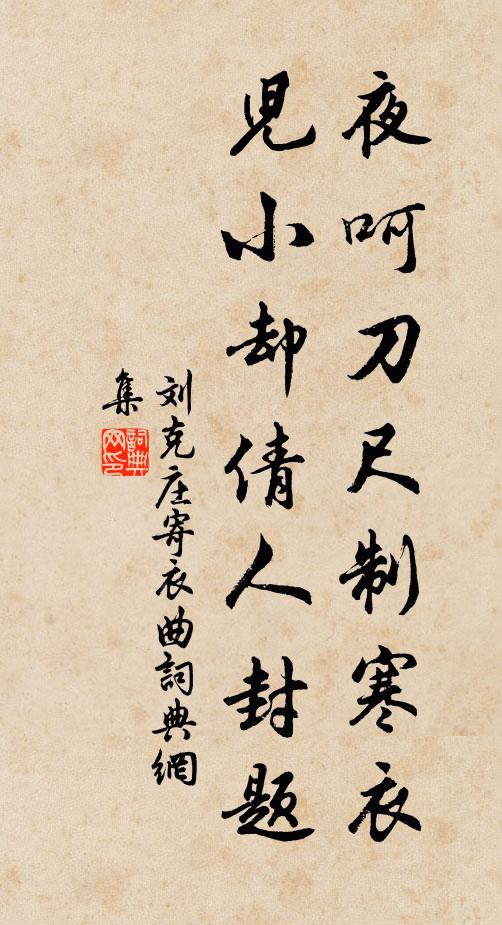 夜呵刀尺制寒衣
児小却倩人封题
刘克庄寄衣曲詞典網
集
詞典网印